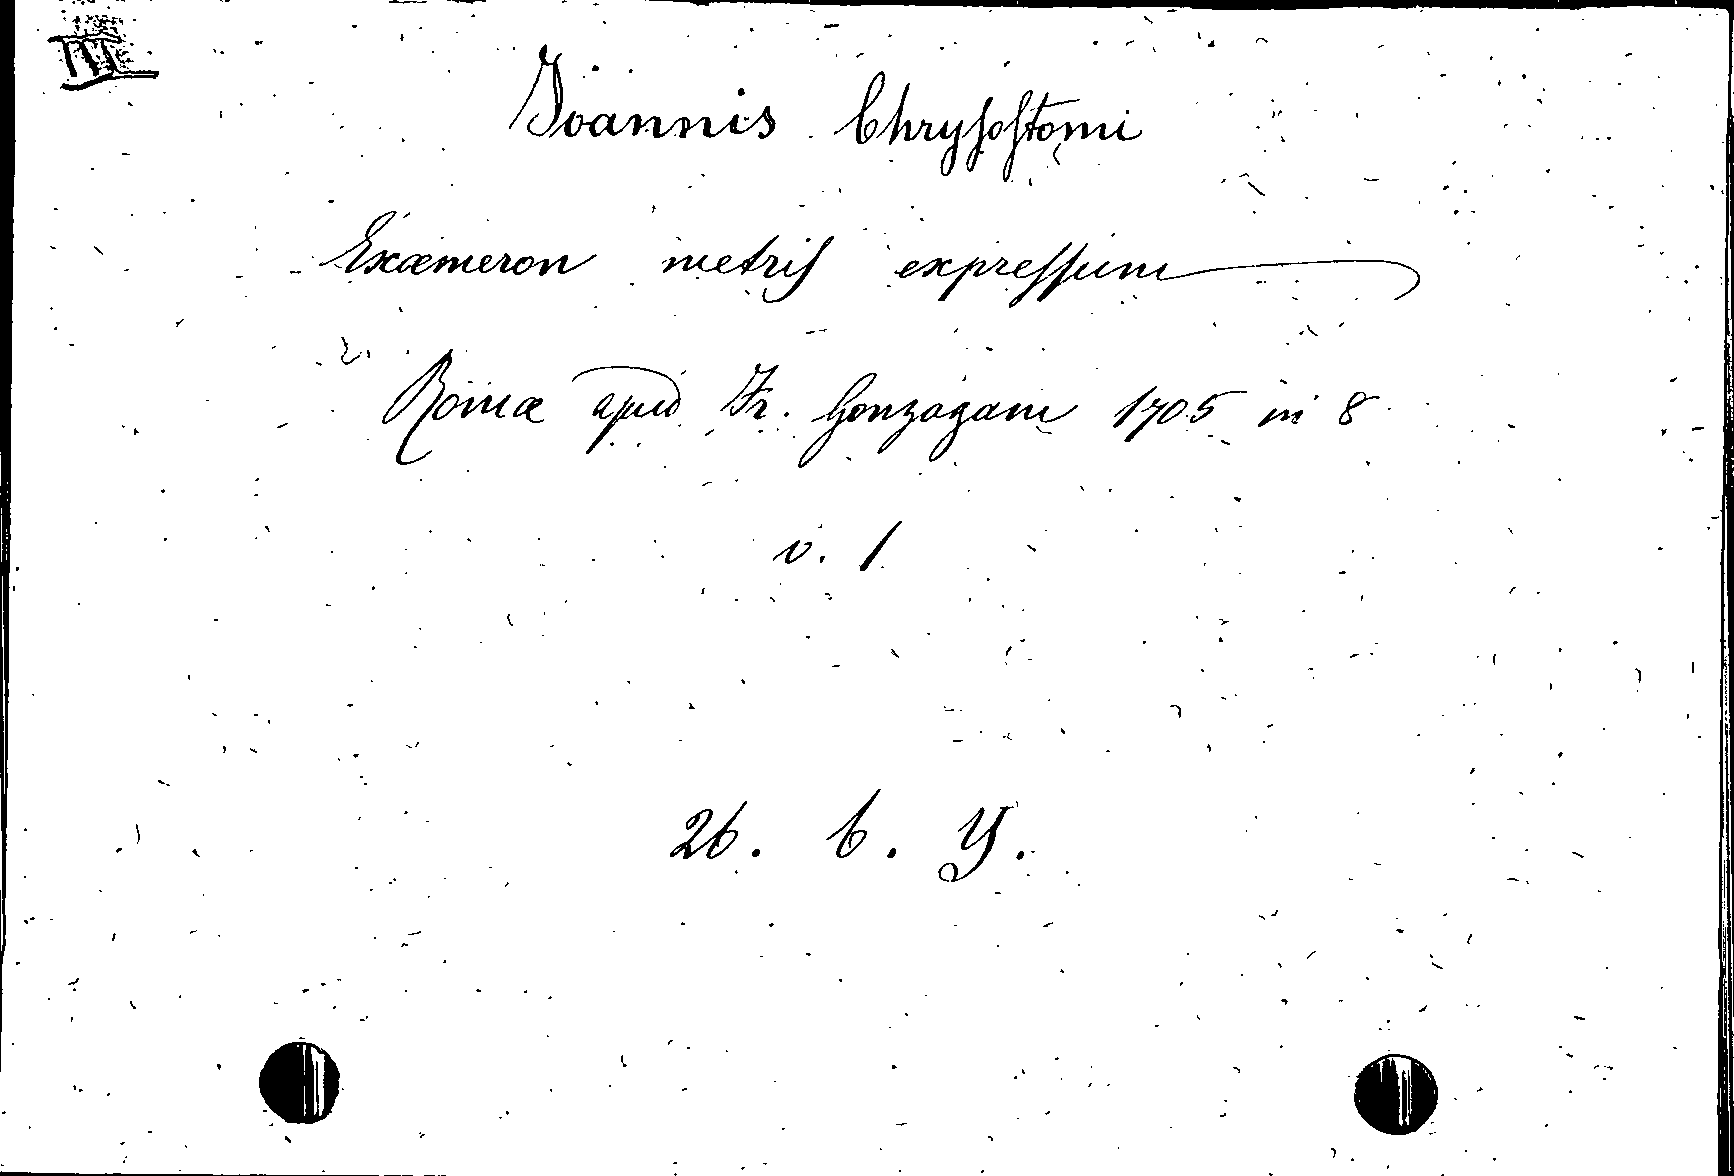 III
Joannis Chrysostomi
Exæmeron metris expressum
Romæ apud Fr. Gonzagam 1705 in 8
v. 1
26. 6. Y.